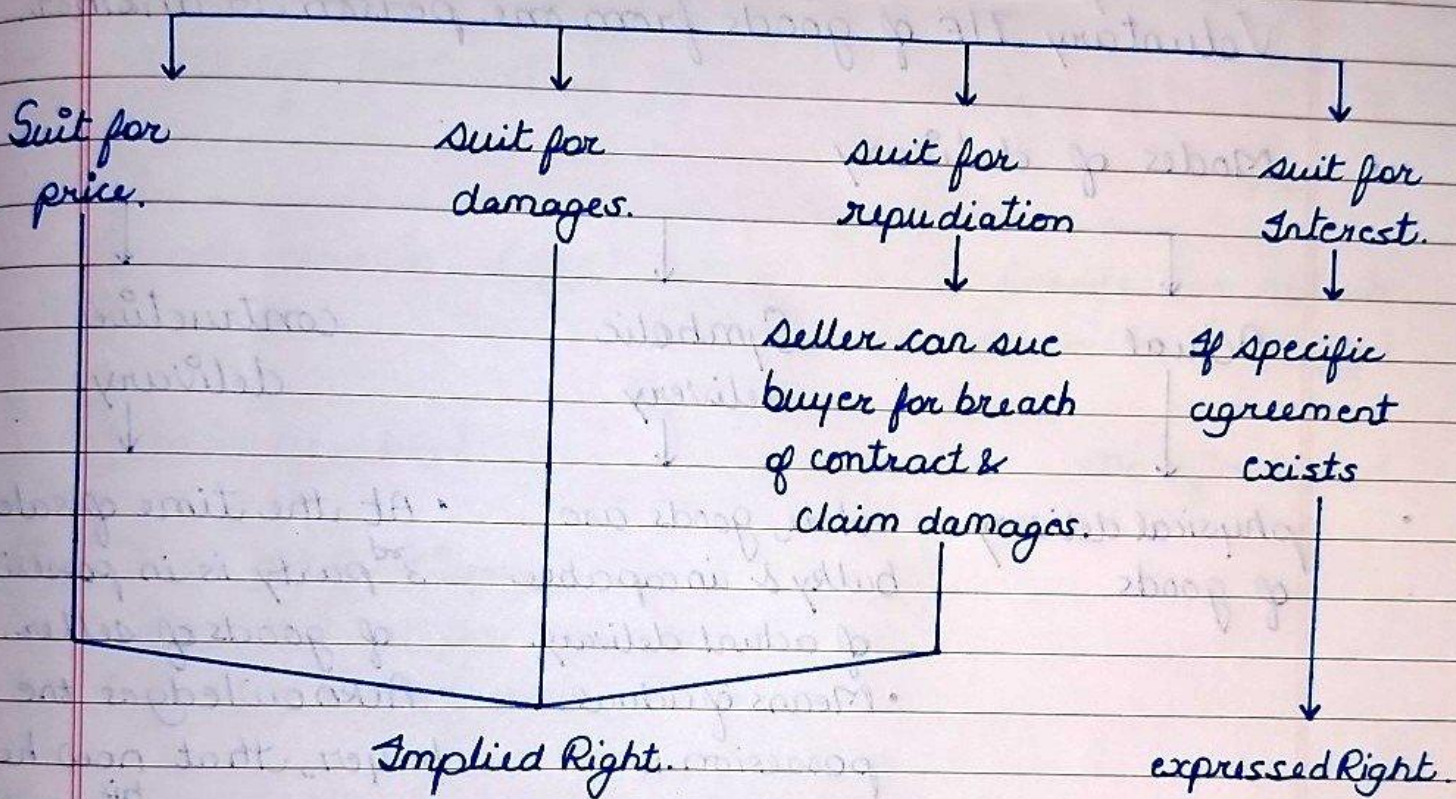 Suit for
price.
suit for
damages.
suit for
repudiation
suit for
Interest.
Seller can sue
buyer for breach
of contract &
claim damages.
If specific
agreement
exists
Implied Right.
expressed Right.